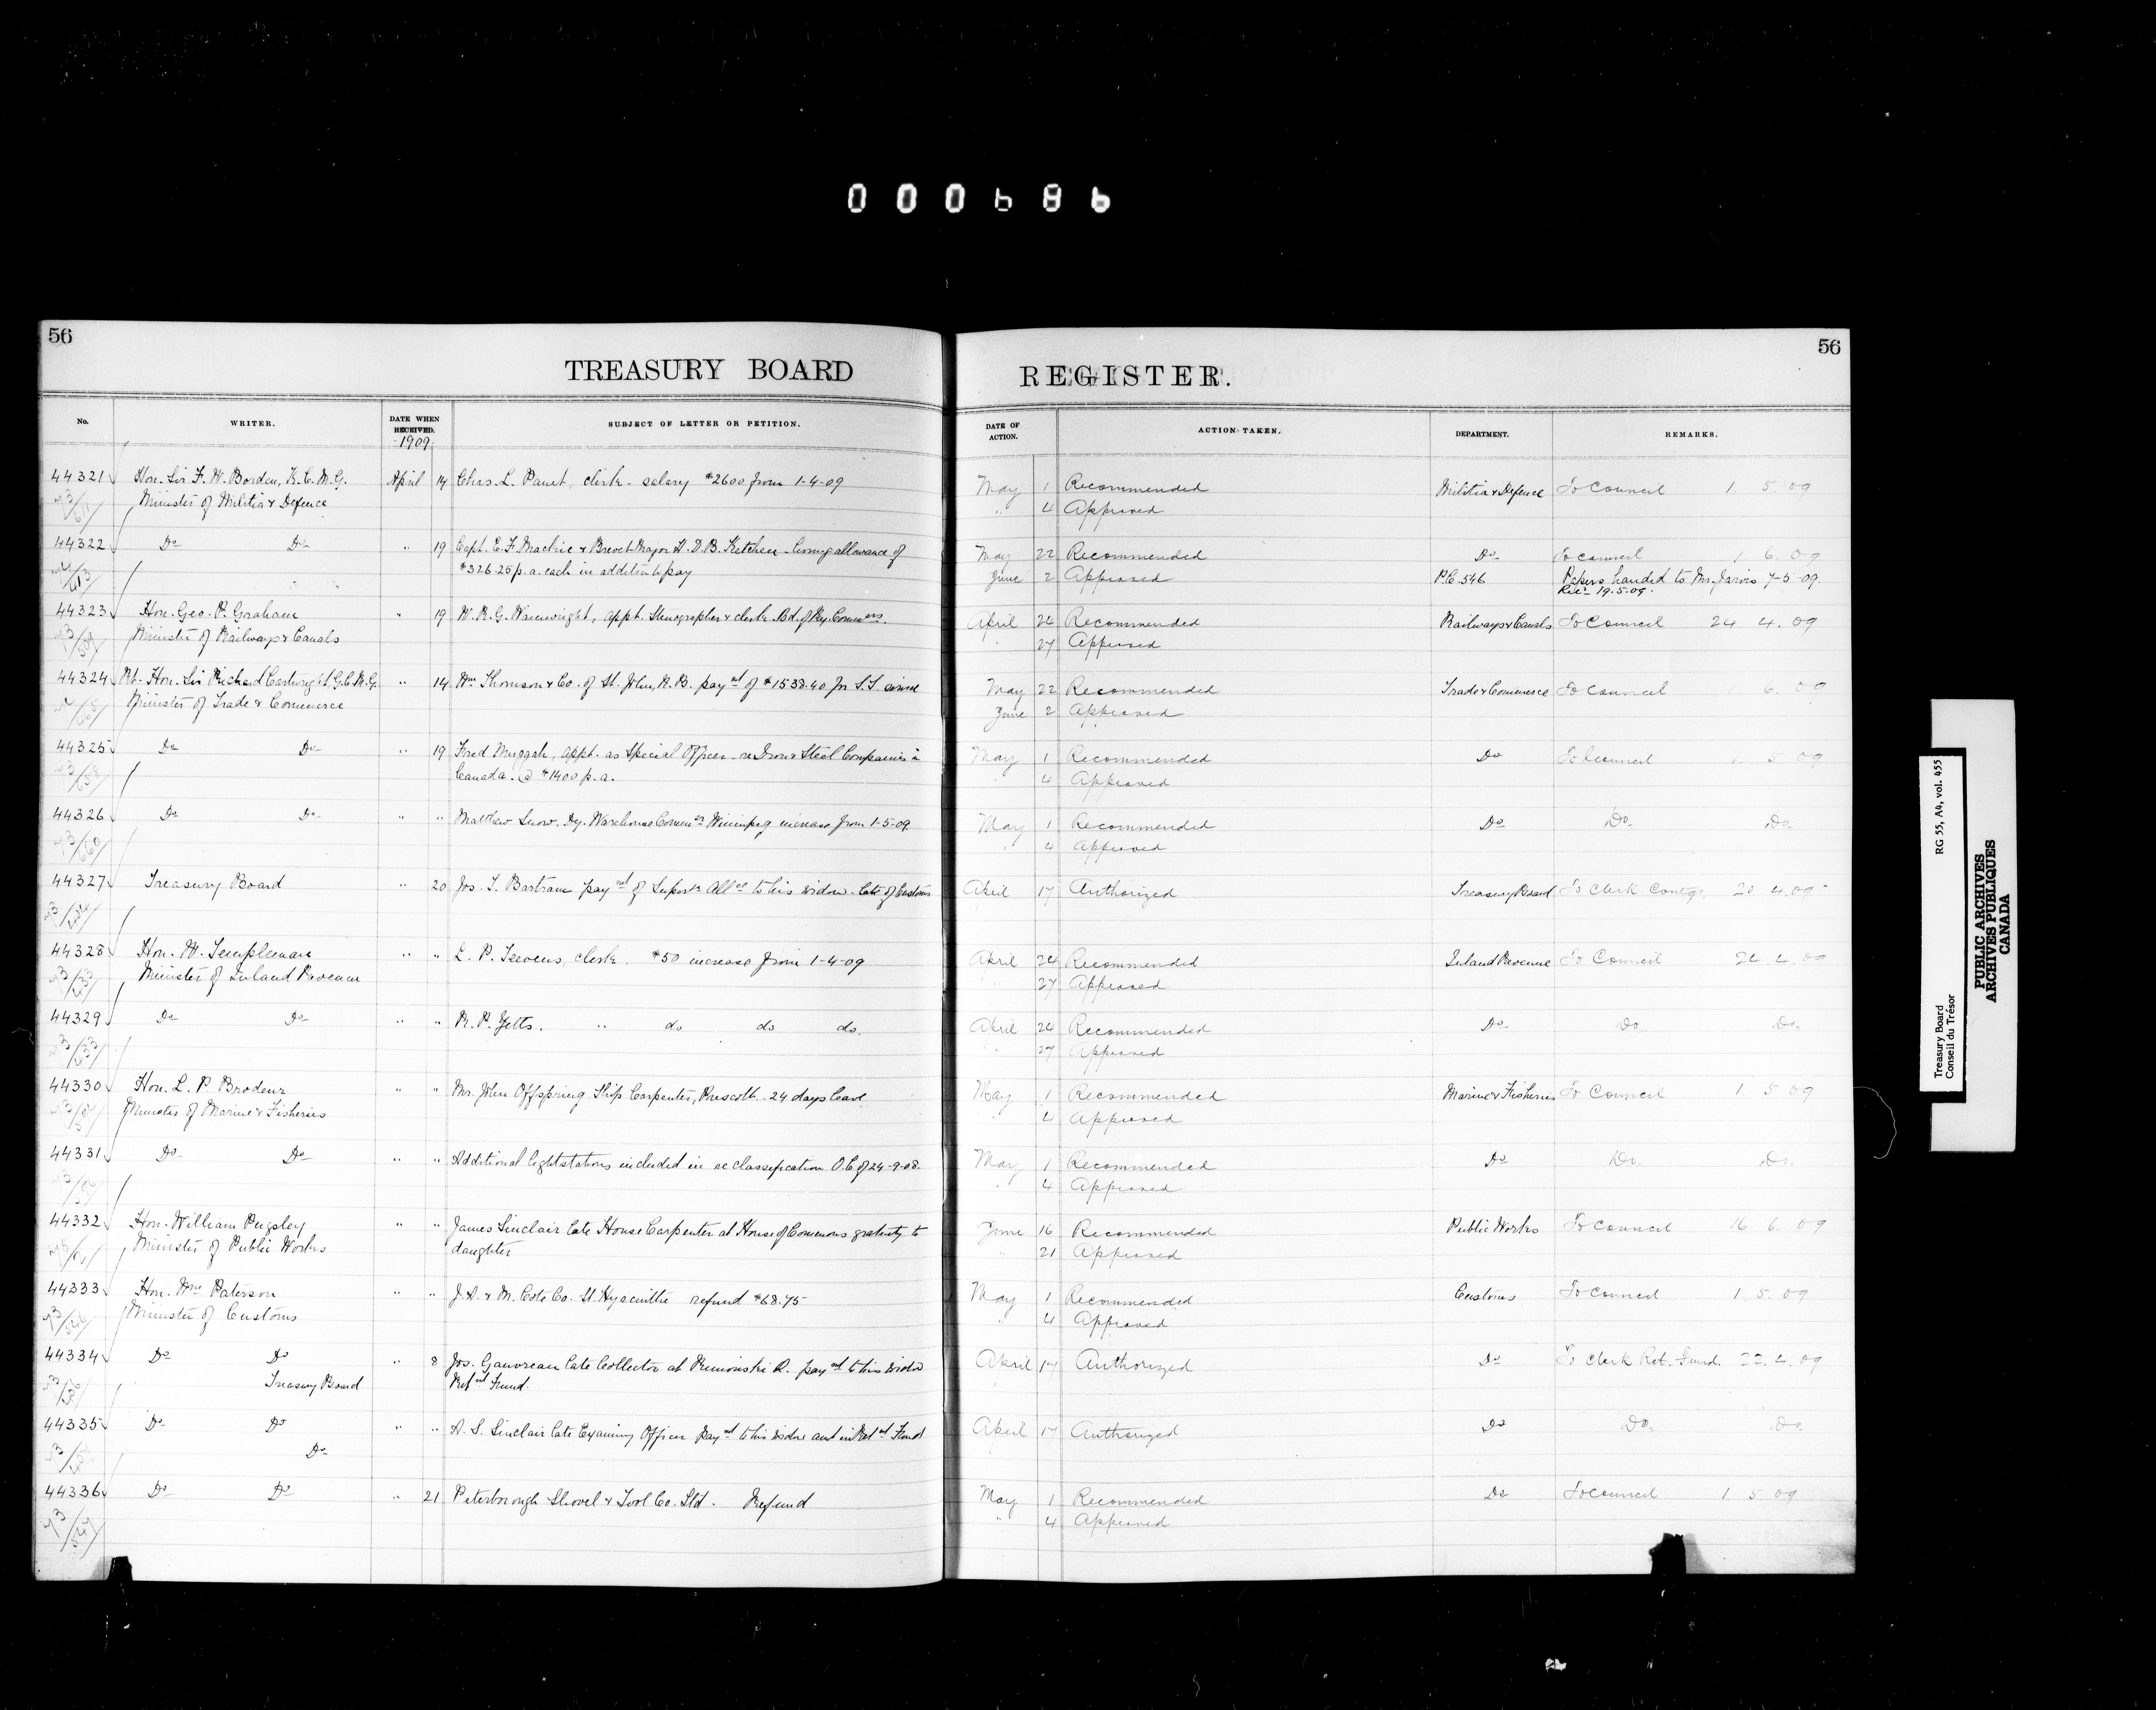 000686
56
TREASURY BOARD
No.
WRITER.
DATE WHEN RECEIVED.
1909
SUBJECT OF LETTER OR PETITION.
44321 Hon. Sir F. W. Borden, K.C.M.G. April 14 Chas. L. Panet, clerk - salary $2600 from 1-4-09
Minister of Militia & Defence
44322 Do Do " 19 Capt. E. F. Mackie & Brevet Major H. D. B. Ketchen - living allowance of
$326.25 p.a. each in addition to pay
44323 Hon. Geo. P. Graham " 19 W. R. G. Wainwright, appt. Stenographer & clerk Bd. of Ry. Commrs.
Minister of Railways & Canals
44324 Rt. Hon. Sir Richard Cartwright G.C.M.G. " 14 Wm Thomson & Co. of St. John, N.B. payt of $1538.40 for S.S. service
Minister of Trade & Commerce
44325 Do Do " 19 Fred Muggah, appt. as Special Officer - re Iron & Steel Companies in
Canada. @ $1400 p.a.
44326 Do Do " " Matthew Snow, Dy. Warehouse Commr Winnipeg increase from 1-5-09
44327 Treasury Board " 20 Jos. T. Bartram payt of Superan Allce to his widow - late of Customs
44328 Hon. W. Templeman " " L. P. Teevens, clerk. $50 increase from 1-4-09
Minister of Inland Revenue
44329 Do Do " " R. P. Yetts. " do do do.
44330 Hon. L. P. Brodeur " " Mr. John Offspring Ship Carpenter, Prescott - 24 days leave
Minister of Marine & Fisheries
44331 Do Do " " Additional lightstations included in reclassification O.C. of 24-9-08.
44332 Hon. William Pugsley " " James Sinclair late House Carpenter at House of Commons gratuity to
Minister of Public Works daughter
44333 Hon. Wm Paterson " " J. A. & M. Cote Co. St. Hyacinthe refund $68.75
Minister of Customs
44334 Do Do " 8 Jos. Gauvreau late Collector at Rimouski Q. payt to his widow
Treasury Board Retnt Fund.
44335 Do Do " " A. S. Sinclair late Examining Officer payt to his widow amt in Retnt Fund
Do
44336 Do Do " 21 Peterborough Shovel & Tool Co. Ltd. Refund
56
REGISTER.
DATE OF ACTION.
ACTION TAKEN.
DEPARTMENT.
REMARKS.
May 1 Recommended Militia & Defence To Council 1. 5. 09
" 4 Approved
May 22 Recommended Do To Council 1. 6. 09
June 2 Approved P.C. 546 Papers handed to Mr. Jarvis 7-5-09.
Recd 19.5.09.
April 24 Recommended Railways & Canals To Council 24 4. 09
" 27 Approved
May 22 Recommended Trade & Commerce To Council 1 6. 09
June 2 Approved
May 1 Recommended Do To Council 1. 5 09
" 4 Approved
May 1 Recommended Do Do. Do.
" 4 Approved
April 17 Authorized Treasury Board To Clerk Contgs. 20 4. 09
April 24 Recommended Inland Revenue To Council 24 4. 09
" 27 Approved
April 24 Recommended Do Do. Do.
" 27 Approved
May 1 Recommended Marine & Fisheries To Council 1 5 09
" 4 Approved
May 1 Recommended Do Do. Do.
" 4 Approved
June 16 Recommended Public Works To Council 16 6. 09
" 21 Approved
May 1 Recommended Customs To Council 1. 5. 09
" 4 Approved
April 17 Authorized Do To Clerk Ret. Fund. 22. 4. 09
April 17 Authorized Do Do. Do.
May 1 Recommended Do To Council 1. 5 09
" 4 Approved
Treasury Board RG 55, A4, vol. 455
Conseil du Trésor
PUBLIC ARCHIVES
ARCHIVES PUBLIQUES
CANADA